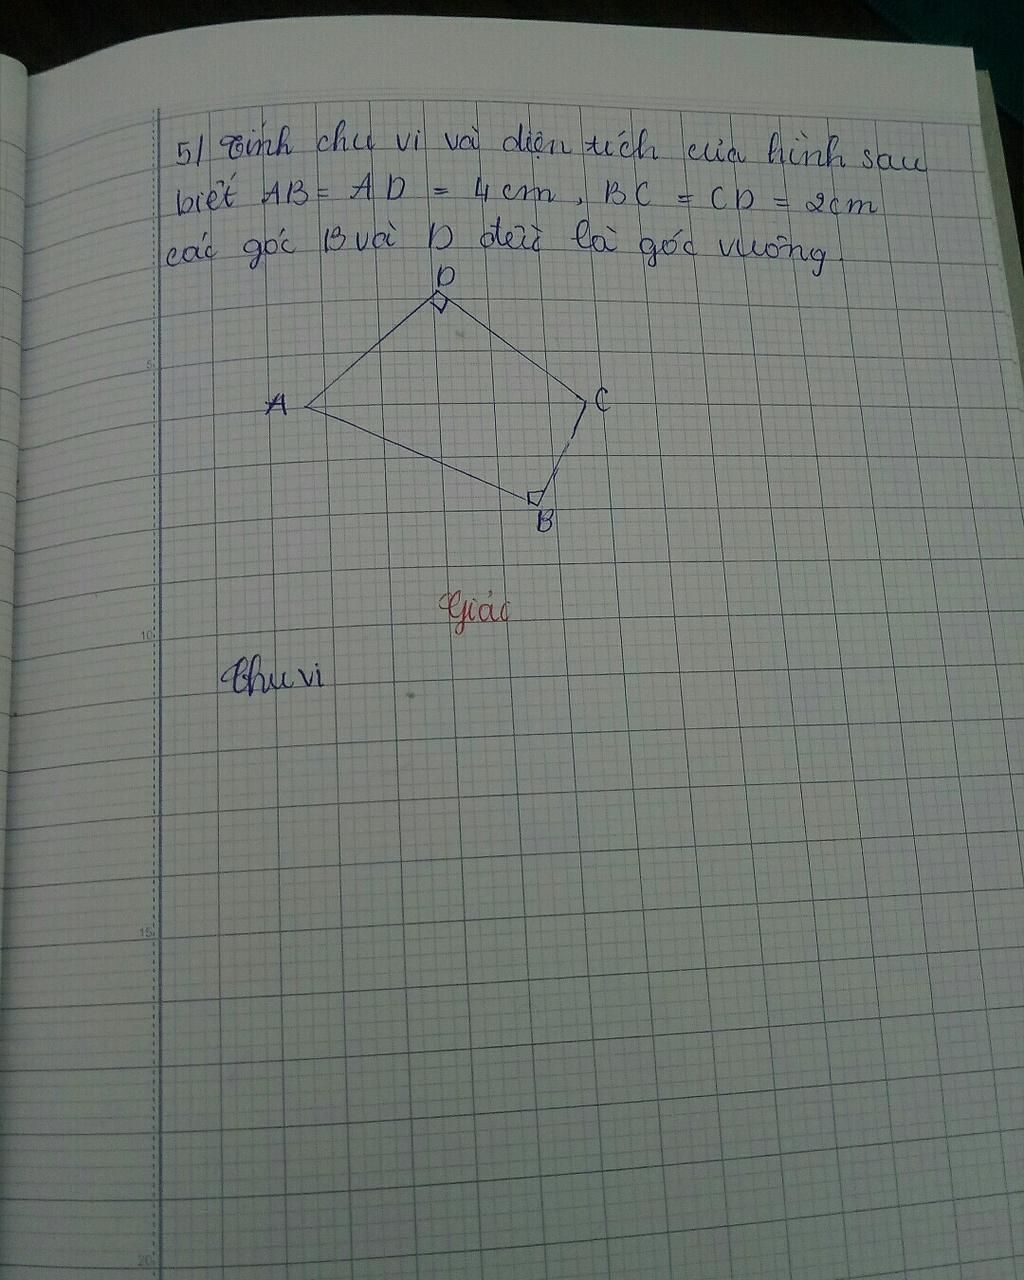 5/ Tính chu vi và diện tích của hình sau
biết AB = AD = 4 cm, BC = CD = 2cm
các góc B và D đều là góc vuông
D
A
C
B
5
Giải
10
Chu vi
15
20